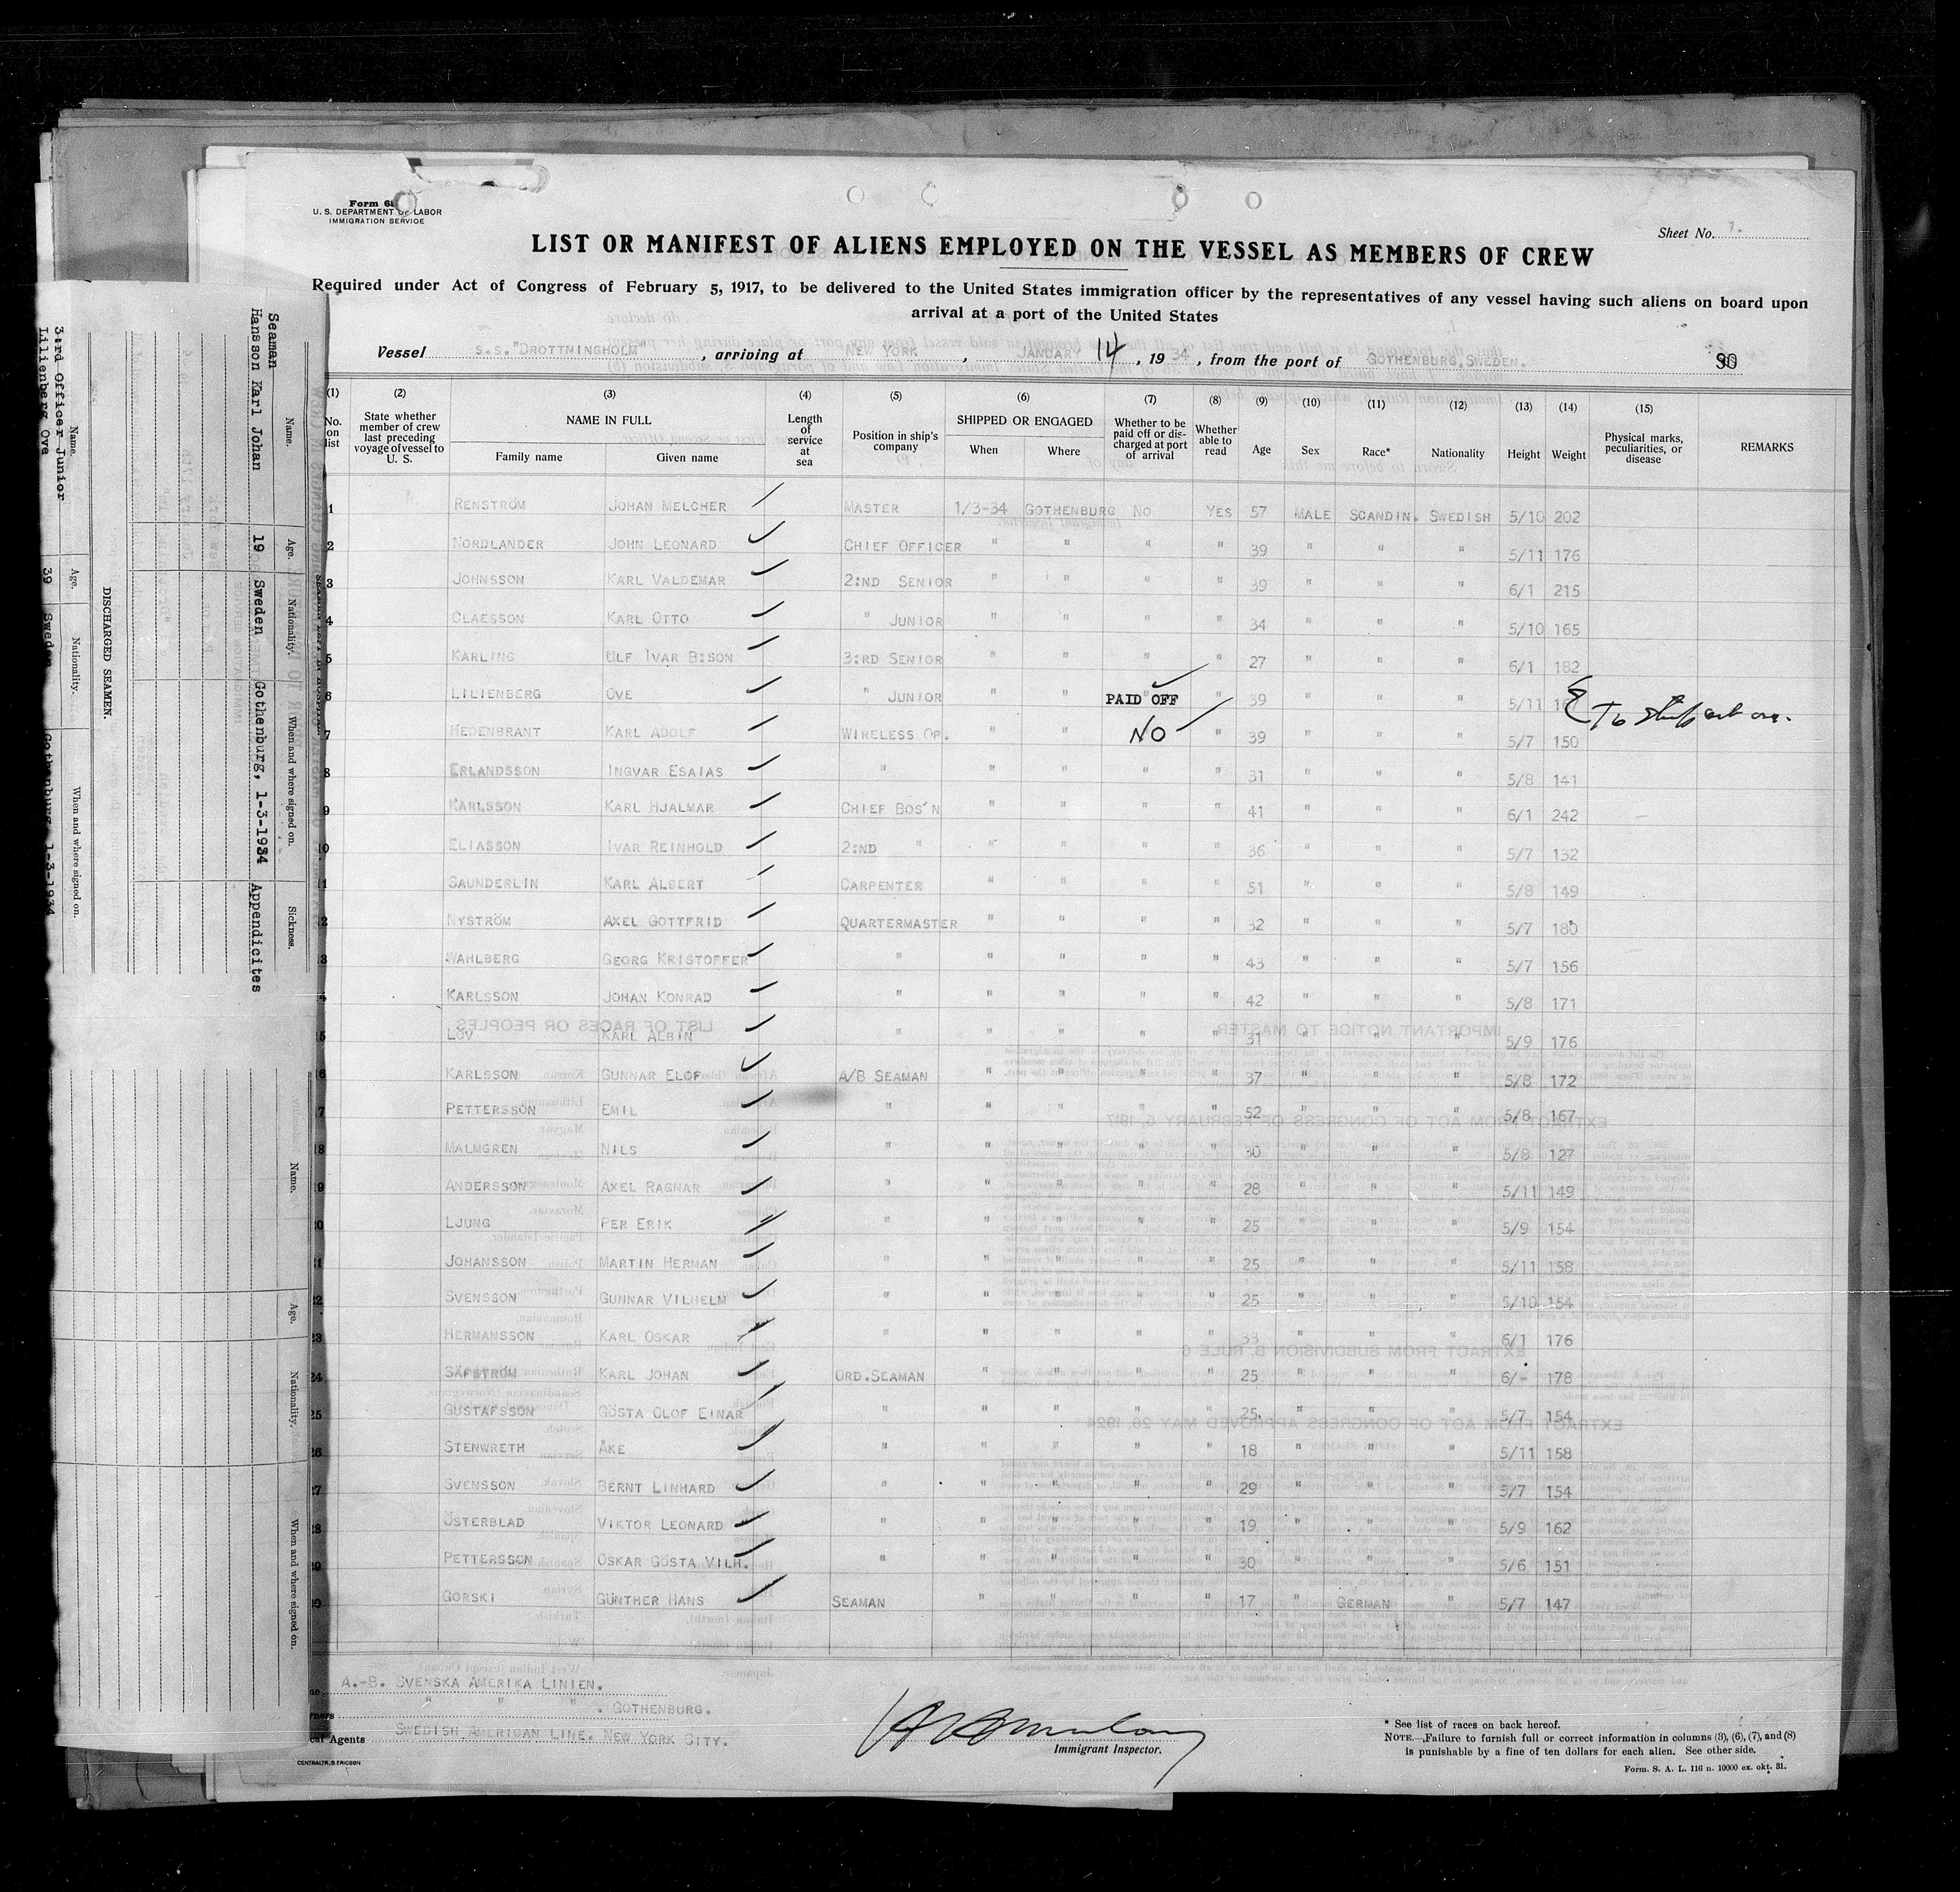 Form 68
U. S. DEPARTMENT OF LABOR
IMMIGRATION SERVICE
Sheet No. 1.
LIST OR MANIFEST OF ALIENS EMPLOYED ON THE VESSEL AS MEMBERS OF CREW
Required under Act of Congress of February 5, 1917, to be delivered to the United States immigration officer by the representatives of any vessel having such aliens on board upon
arrival at a port of the United States
Vessel S.S. "DROTTNINGHOLM", arriving at NEW YORK, JANUARY 14, 1934, from the port of GOTHENBURG, SWEDEN. 30
(1) (2) (3) (4) (5) (6) (7) (8) (9) (10) (11) (12) (13) (14) (15)
No. on list | State whether member of crew last preceding voyage of vessel to U. S. | NAME IN FULL Family name Given name | Length of service at sea | Position in ship's company | SHIPPED OR ENGAGED When Where | Whether to be paid off or discharged at port of arrival | Whether able to read | Age | Sex | Race* | Nationality | Height | Weight | Physical marks, peculiarities, or disease | REMARKS
1 RENSTRÖM JOHAN MELCHER MASTER 1/3-34 GOTHENBURG NO YES 57 MALE SCANDIN. SWEDISH 5/10 202
2 NORDLANDER JOHN LEONARD CHIEF OFFICER " " " " 39 " " " 5/11 176
3 JOHNSSON KARL VALDEMAR 2:ND SENIOR " " " " 39 " " " 6/1 215
4 CLAESSON KARL OTTO " JUNIOR " " " " 34 " " " 5/10 165
5 KARLING ULF IVAR B:SON 3:RD SENIOR " " " " 27 " " " 6/1 182
6 LILIENBERG OVE " JUNIOR " " PAID OFF " 39 " " " 5/11 167 To
7 HEDENBRANT KARL ADOLF WIRELESS OP. " " NO " 39 " " " 5/7 150
8 ERLANDSSON INGVAR ESAIAS " " " " " 31 " " " 5/8 141
9 KARLSSON KARL HJALMAR CHIEF BOS'N " " " " 41 " " " 6/1 242
10 ELIASSON IVAR REINHOLD 2:ND " " " " " 36 " " " 5/7 132
11 SAUNDERLIN KARL ALBERT CARPENTER " " " " 51 " " " 5/8 149
12 NYSTRÖM AXEL GOTTFRID QUARTERMASTER " " " " 32 " " " 5/7 180
13 WAHLBERG GEORG KRISTOFFER " " " " " 43 " " " 5/7 156
14 KARLSSON JOHAN KONRAD " " " " " 42 " " " 5/8 171
15 LÖV KARL ALBIN " " " " " 31 " " " 5/9 176
16 KARLSSON GUNNAR ELOF A/B SEAMAN " " " " 37 " " " 5/8 172
17 PETTERSSON EMIL " " " " " 52 " " " 5/8 167
18 MALMGREN NILS " " " " " 30 " " " 5/8 127
19 ANDERSSON AXEL RAGNAR " " " " " 28 " " " 5/11 149
20 LJUNG PER ERIK " " " " " 25 " " " 5/9 154
21 JOHANSSON MARTIN HERMAN " " " " " 25 " " " 5/11 158
22 SVENSSON GUNNAR VILHELM " " " " " 25 " " " 5/10 154
23 HERMANSSON KARL OSKAR " " " " " 33 " " " 6/1 176
24 SÄFSTRÖM KARL JOHAN ORD.SEAMAN " " " " 25 " " " 6/- 178
25 GUSTAFSSON GÖSTA OLOF EINAR " " " " " 25 " " " 5/7 154
26 STENWRETH ÅKE " " " " " 18 " " " 5/11 158
27 SVENSSON BERNT LINHARD " " " " " 29 " " " 5/7 154
28 ÖSTERBLAD VIKTOR LEONARD " " " " " 19 " " " 5/9 162
29 PETTERSSON OSKAR GÖSTA VILH. " " " " " 30 " " " 5/6 151
30 GORSKI GÜNTHER HANS SEAMAN " " " " 17 " GERMAN " 5/7 147
A.-B. SVENSKA AMERIKA LINIEN.
" " " . GOTHENBURG.
Agents SWEDISH AMERICAN LINE. NEW YORK CITY.
Immigrant Inspector.
* See list of races on back hereof.
NOTE.—Failure to furnish full or correct information in columns (3), (6), (7), and (8)
is punishable by a fine of ten dollars for each alien. See other side.
Form. S. A. L. 116 n. 10000 ex. okt. 31.
CENTRALTR. G. ERICSON
Name. Age. Nationality. When and where signed on. Sickness.
Seaman
Hansson Karl Johan 19 Sweden Gothenburg, 1-3-1934 Appendicites
DISCHARGED SEAMEN.
Name. Age. Nationality. When and where signed on.
3:rd Officer Junior
Lilienberg Ove 39 Sweden Gothenburg 1-3-1934
Name. Age. Nationality. When and where signed on.